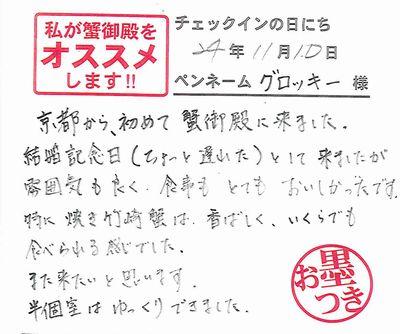 私が蟹御殿を
オススメ
します!!
チェックインの日にち
24年11月10日
ペンネーム グロッキー 様
京都から、初めて蟹御殿に来ました。
結婚記念日(ちょっと遅れた)として来ましたが
雰囲気も良く、食事もとてもおいしかったです。
特に焼き竹崎蟹は、香ばしく、いくらでも
食べられる感じでした。
また来たいと思います。
半個室はゆっくりできました。
墨
おつき